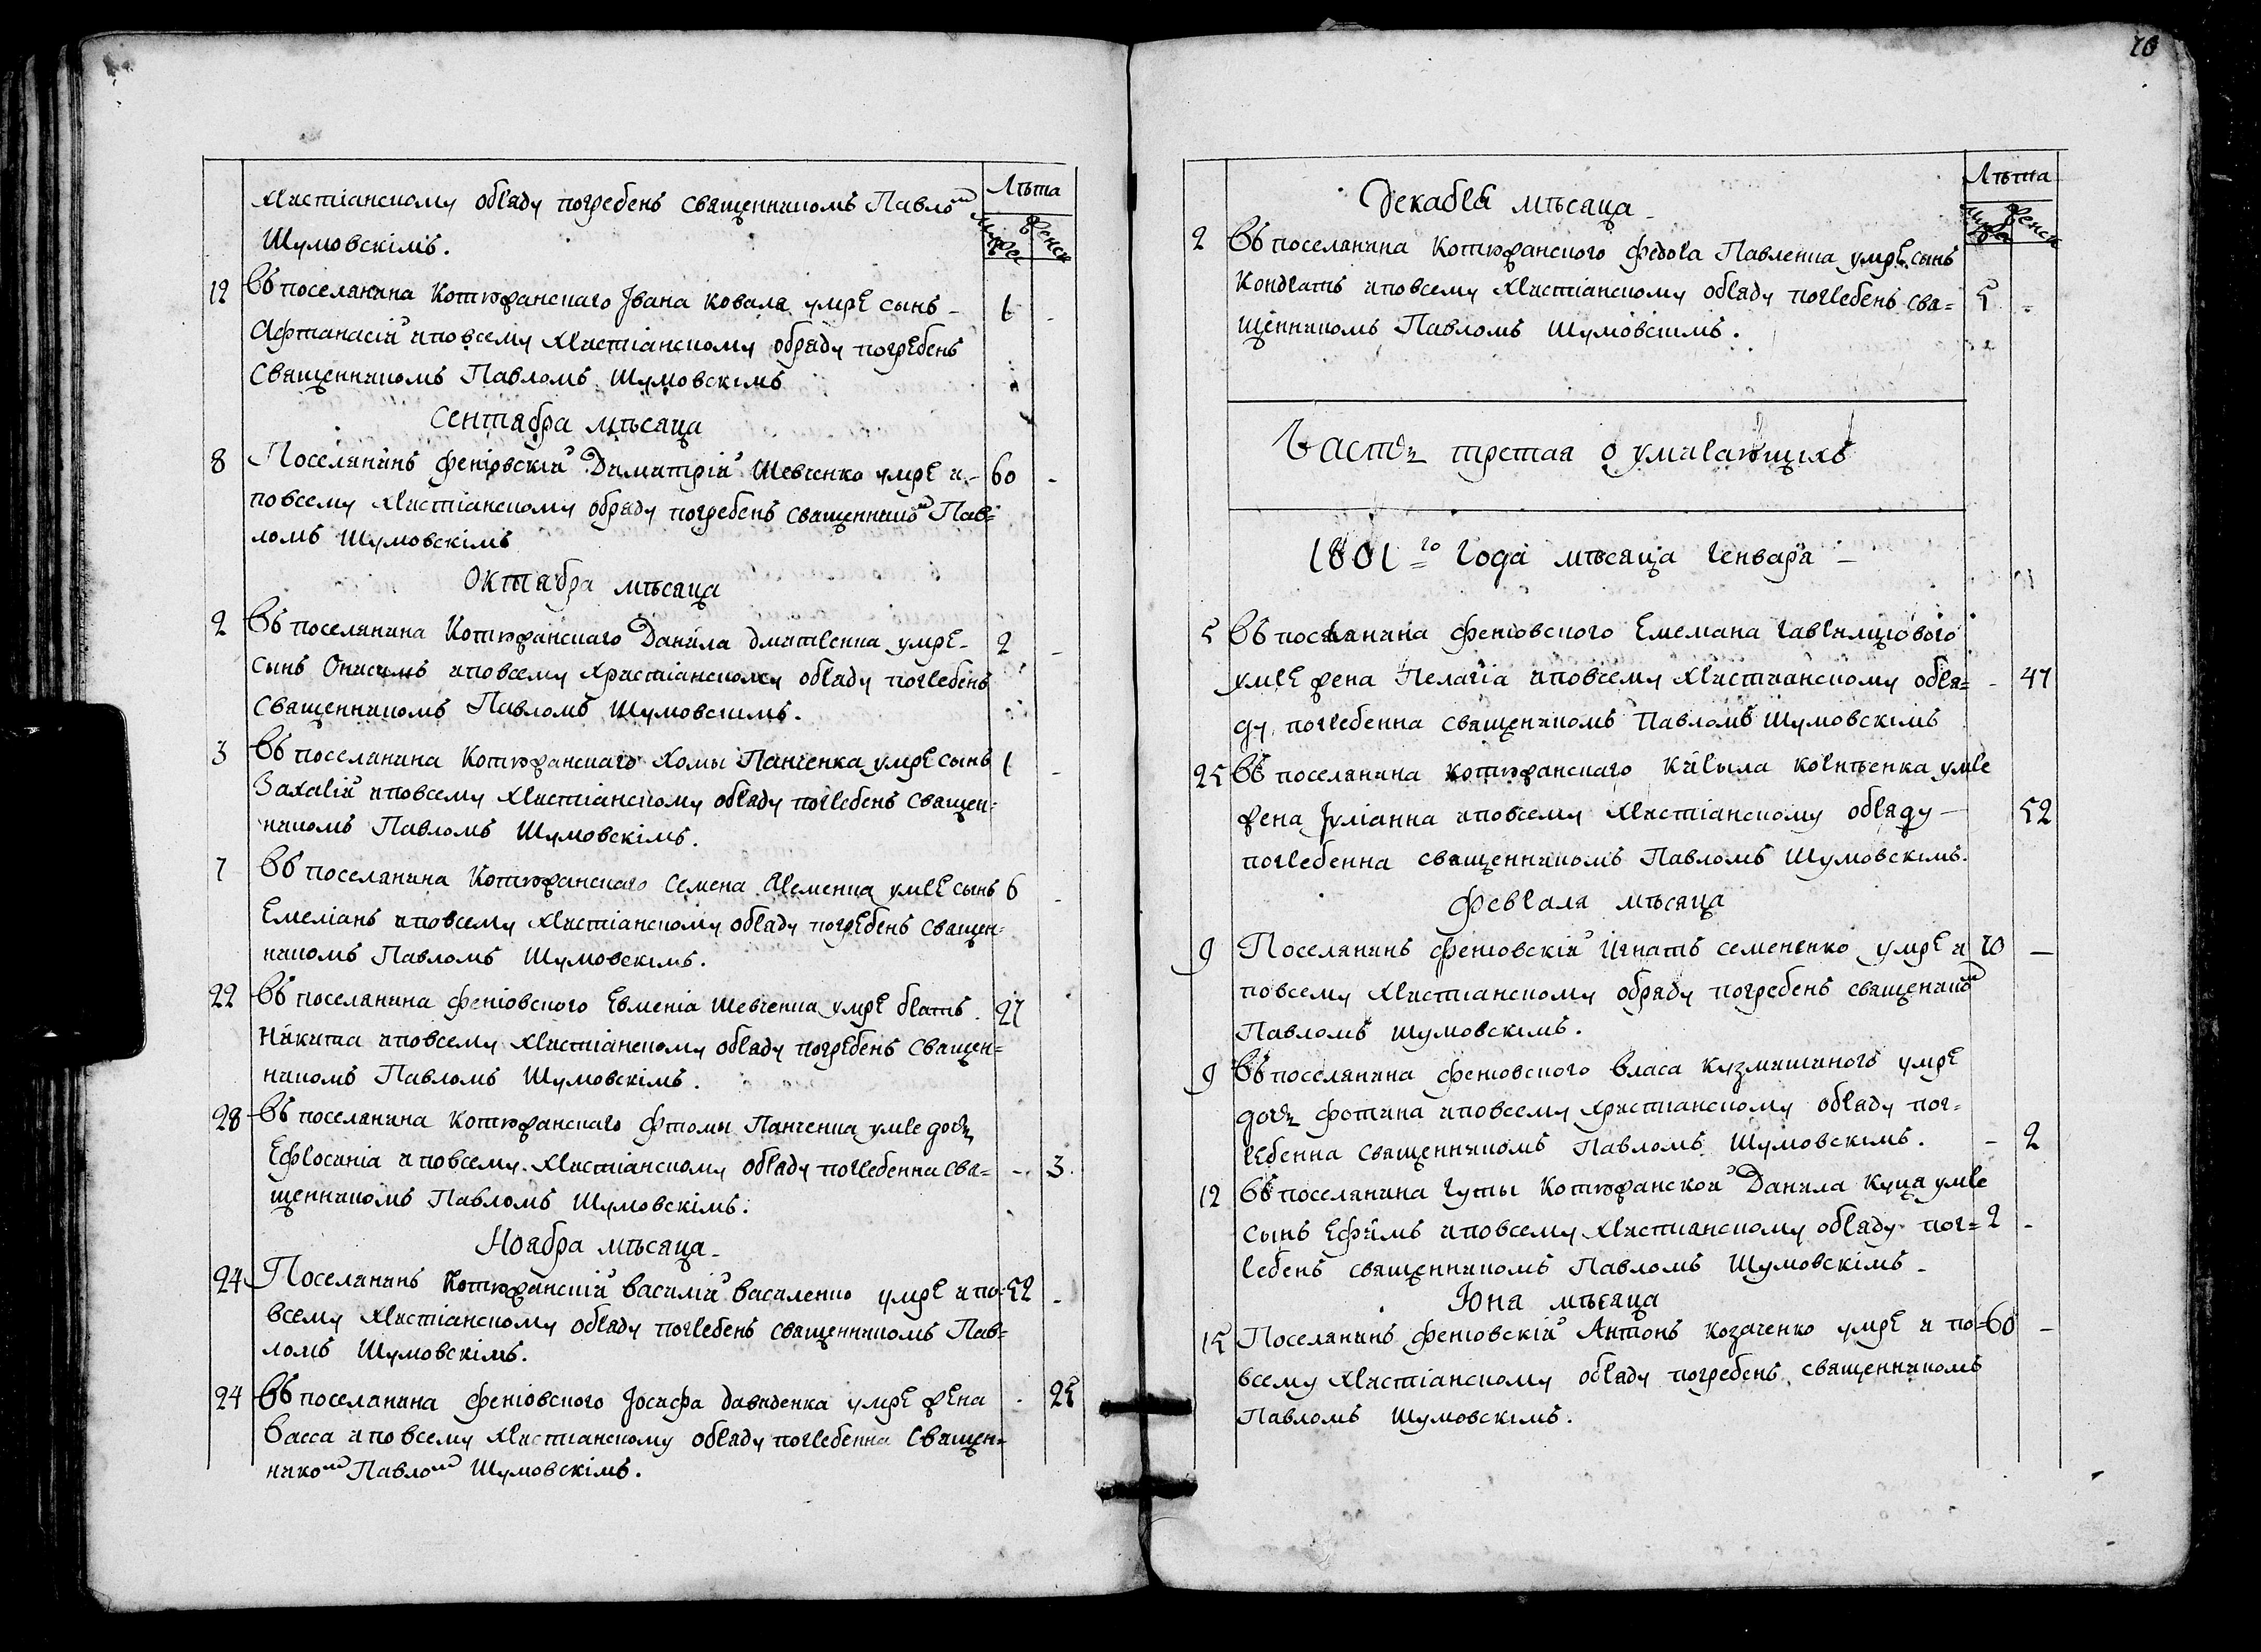 Лѣта
Мужеск Женск
христіанскому обряду погребенъ священникомъ Павломъ
Шумовскімъ.
12 Въ поселянина Котюжанскаго Јвана коваля умре сынъ - 1 -
Афтанасій и по всему христіанскому обряду погребенъ
Священникомъ Павломъ Шумовскимъ
Сентября мѣсяца
8 Поселянинъ феніовскій Димитрій Шевченко умре и - 60 -
по всему христіанскому обряду погребенъ священникомъ Пав=
ломъ Шумовскімъ
Октября мѣсяца
2 Въ поселянина Котюжанскаго Данила дмитренка умре - 2 -
сынъ Онисимъ и по всему христіанскому обряду погребенъ
Священникомъ Павломъ Шумовскимъ.
3 Въ поселянина Котюжанскаго Хомы Панченка умре сынъ 1 -
Захарій и по всему христіанскому обряду погребенъ священ=
никомъ Павломъ Шумовскімъ.
7 Въ поселянина Котюжанскаго Семена Яременка умре сынъ 6 -
Емеліанъ и по всему христіанскому обряду погребенъ Священ=
никомъ Павломъ Шумовскимъ.
22 Въ поселянина феніовского Евменіа Шевченка умре братъ 27
Никита и по всему христіанскому обряду погребенъ Священ=
никомъ Павломъ Шумовскімъ.
28 Въ поселянина Котюжанскаго Фтомы Панченка умре дочь
Ефросиніа и по всему христіанскому обряду погребенна Свя= - 3.
щенникомъ Павломъ Шумовскімъ.
Ноября мѣсяца -
24 Поселянинъ Котюжанскій Василій Василенко умре и по= 52 -
всему христіанскому обряду погребенъ священникомъ Пав=
ломъ Шумовскімъ.
24 Въ поселянина феніовского Јосифа давиденка умре жена - 25
Васса и по всему христианскому обряду погребенна Священ=
никомъ Павломъ Шумовскімъ.
70
Лѣта
Мужеск Женск
Декабря мѣсяца -
2 Въ поселянина Котюжанского Федора Павленка умре сынъ
Кондратъ и по всему христіанскому обряду погребенъ свя= 5 -
щенникомъ Павломъ Шумовскимъ.
Часть третая о умирающихъ
1801=го Года мѣсяца Генваря -
5 Въ поселянина феніовского Емемана гаврилцового
умре жена Пелагіа и по всему христианскому обря= - 47
ду погребенна священикомъ Павломъ Шумовскимъ
25 Въ поселянина котюжанскаго Кирыла корнѣенка умре
жена Јуліанна и по всему христіанскому обряду - 52
погребенна священникомъ Павломъ Шумовскимъ.
Февраля мѣсяца
9 Поселянинъ феніовскій Игнатъ семененко умре и 70 -
по всему христианскому обряду погребенъ священикомъ
Павломъ Шумовскімъ.
9 Въ поселянина феніовского Власа Кузмишиного умре
дочь Фотина и по всему христианскому обряду пог=
ребенна Священникомъ Павломъ Шумовскимъ. - 2
12 Въ поселянина Гуты Котюжанской Данила Куца умре
сынъ Ефимъ и по всему христианскому обряду пог= 2 -
ребенъ священникомъ Павломъ Шумовскімъ -
Јюна мѣсяца
15 Поселянинъ феніовскій Антонъ козаченко умре и по= 60 -
всему христіанскому обряду погребенъ священникомъ
Павломъ Шумовскімъ.